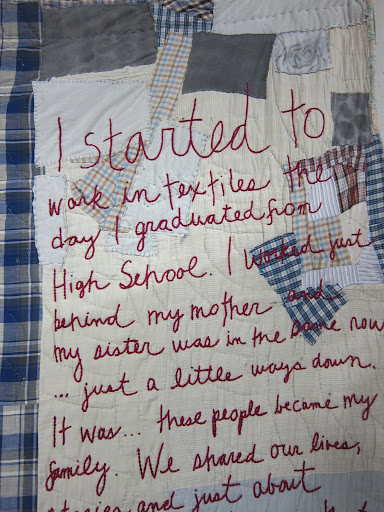 I started to
work in textiles the
day I graduated from
High School. I worked just
behind my mother and
my sister was in the same row
... just a little ways down.
It was... these people became my
family. We shared our lives,
stories and just about